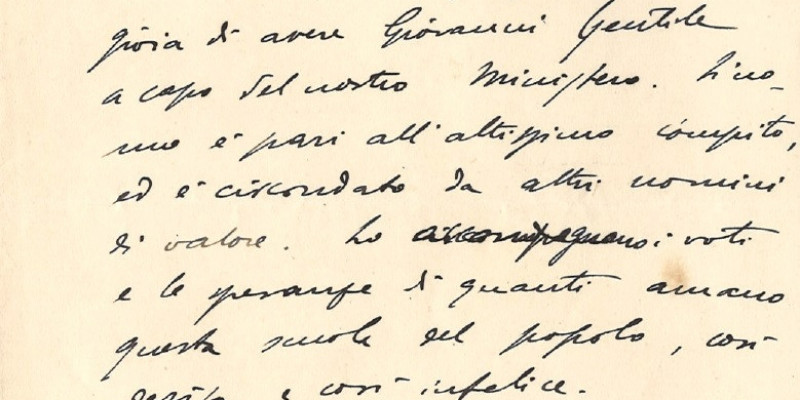 gioia di avere Giovanni Gentile
a capo del nostro Ministero. L'uo-
mo è pari all'altissimo compito,
ed è circondato da altri uomini
di valore. Lo accompagnano i voti
e le speranze di quanti amano
questa scuola del popolo, così
e così infelice.